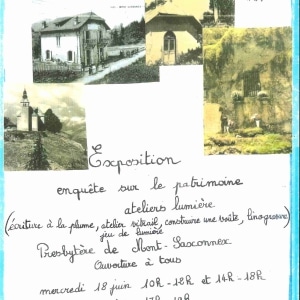 Exposition
enquête sur le patrimoine
ateliers lumière
(écriture à la plume, atelier vitrail, construire une voûte, linogravure
jeu de lumière)
Presbytère de Mont-Saxonnex
Ouverture à tous
mercredi 18 juin 10h-12h et 14h-18h